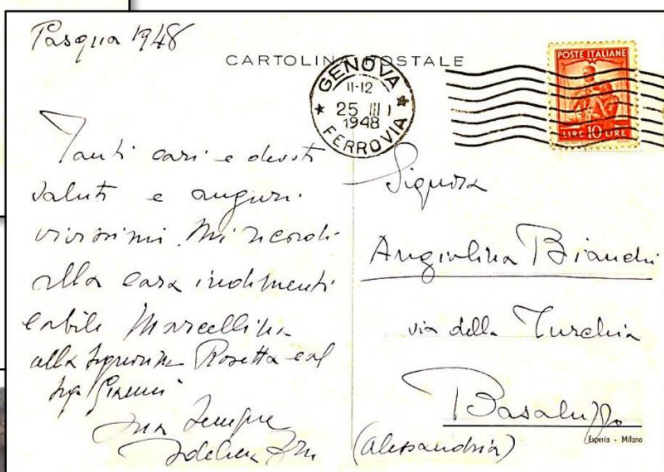 Pasqua 1948
CARTOLINA POSTALE
GENOVA
11-12
25 III
1948
FERROVIA
POSTE ITALIANE
LIRE 10 LIRE
Tanti cari e devoti
saluti e auguri
vivissimi. Mi ricordi
alla cara indimenti
cabile Marcellina
alla Signorina Rosetta e al
Sig. Gianni
Sua sempre
Signora
Angiolina Bianchi
via della Turchia
Basaluzzo
(Alessandria)
Esperia - Milano